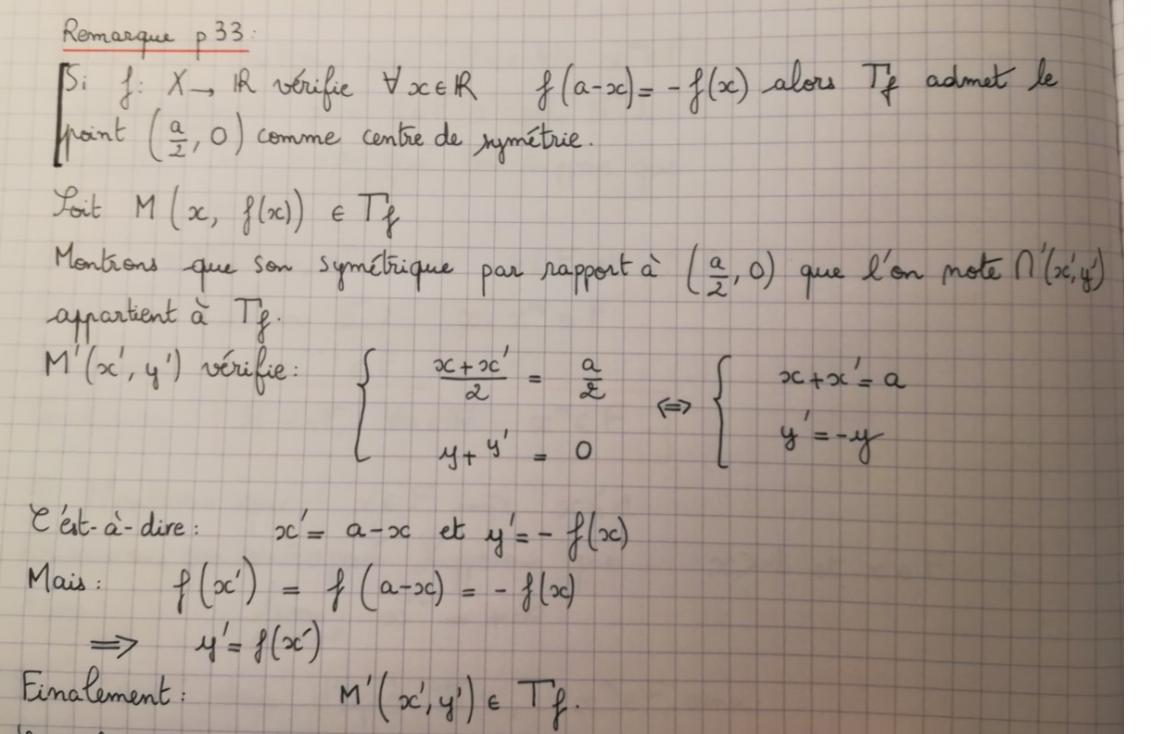 Remarque p 33:
Si f: X → ℝ vérifie ∀ x ∈ ℝ f(a-x) = - f(x) alors Γf admet le
point (a/2, 0) comme centre de symétrie.
Soit M (x, f(x)) ∈ Γf
Montrons que son symétrique par rapport à (a/2, 0) que l'on note M'(x', y')
appartient à Γf.
M'(x', y') vérifie: { (x+x')/2 = a/2 ; y+y' = 0 ⇔ { x+x' = a ; y' = -y
C'est-à-dire: x' = a-x et y' = - f(x)
Mais: f(x') = f(a-x) = - f(x)
⇒ y' = f(x')
Finalement: M'(x', y') ∈ Γf.